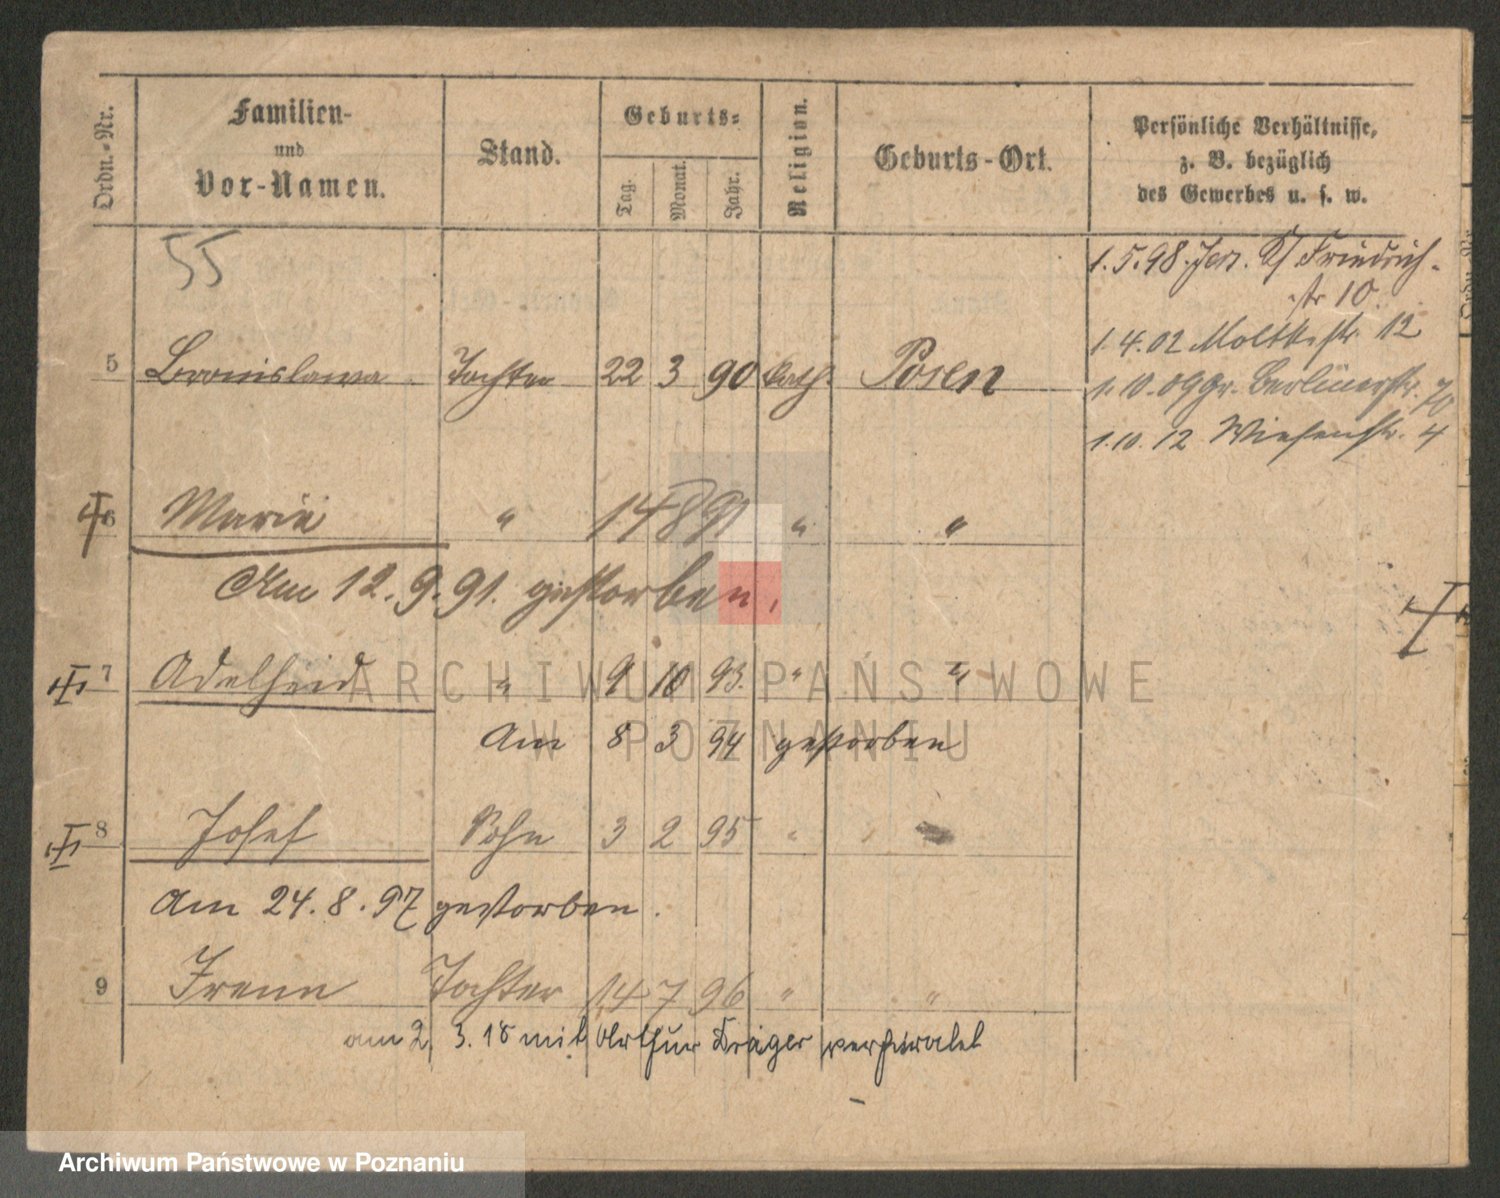 Ordn.-Nr. Familien- und Vor-Namen. Stand. Geburts- Tag. Monat. Jahr. Religion. Geburts-Ort. Persönliche Verhältnisse, z. B. bezüglich des Gewerbes u. s. w.
55
1.5.98. Jers. Friedrich-
str 10.
1.4.02 Moltkestr 12
5 Bronislawa Tochter 22 3 90 kath. Posen
1.10.09 Gr. Berlinerstr. 70
1.10.12 Wiesenstr. 4
6 Marie " 14 8 91 " "
Am 12.9.91. gestorben.
7 Adelheid " 9 10 93. " "
Am 8 3 94 gestorben
8 Josef Sohn 3 2 95 "
Am 24.8.97 gestorben.
9 Irene Tochter 14 7 96 " "
am 2. 3. 18 mit Arthur Kräger verheiratet
ARCHIWUM PAŃSTWOWE
W POZNANIU
Archiwum Państwowe w Poznaniu